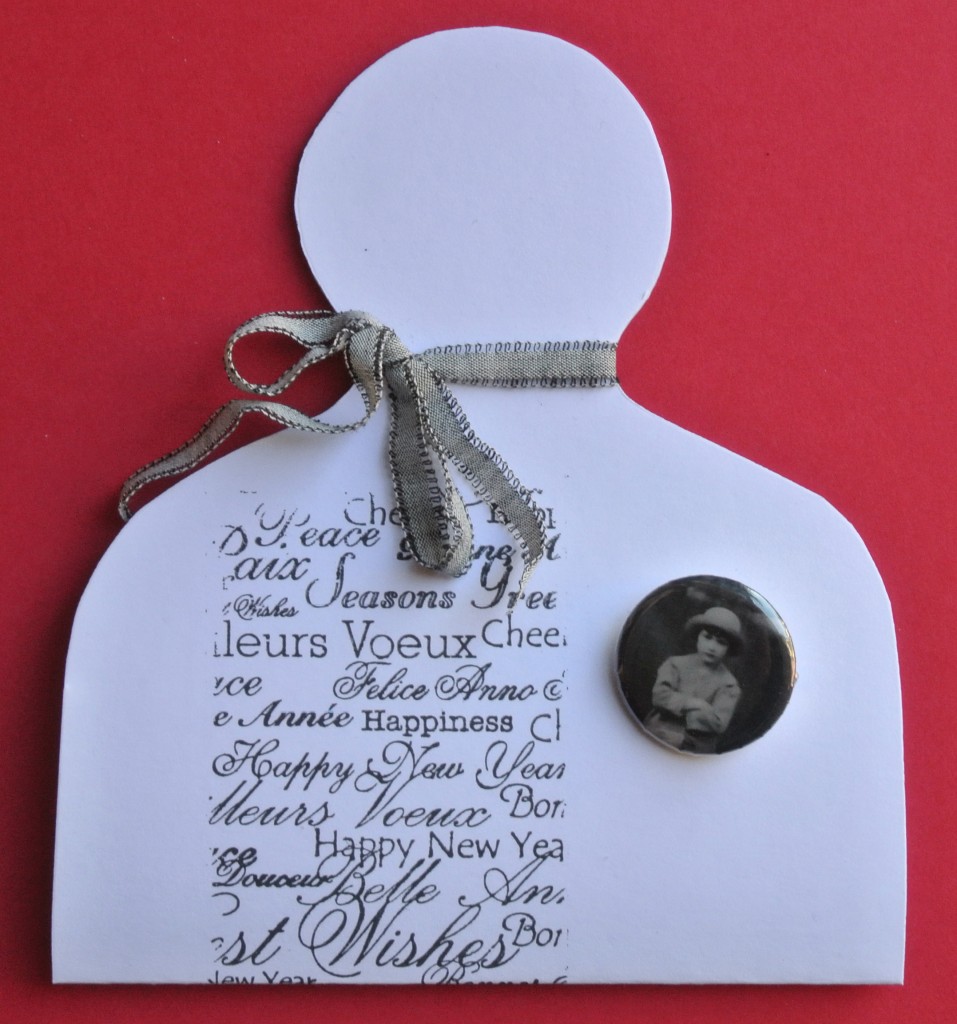 Peace
aix
Seasons Gree
Wishes
lleurs Voeux Chee
ce Felice Anno
e Année Happiness
Happy New Year
lleurs Voeux Bon
Happy New Yea
Douceur Belle An
st Wishes Bon
New Year